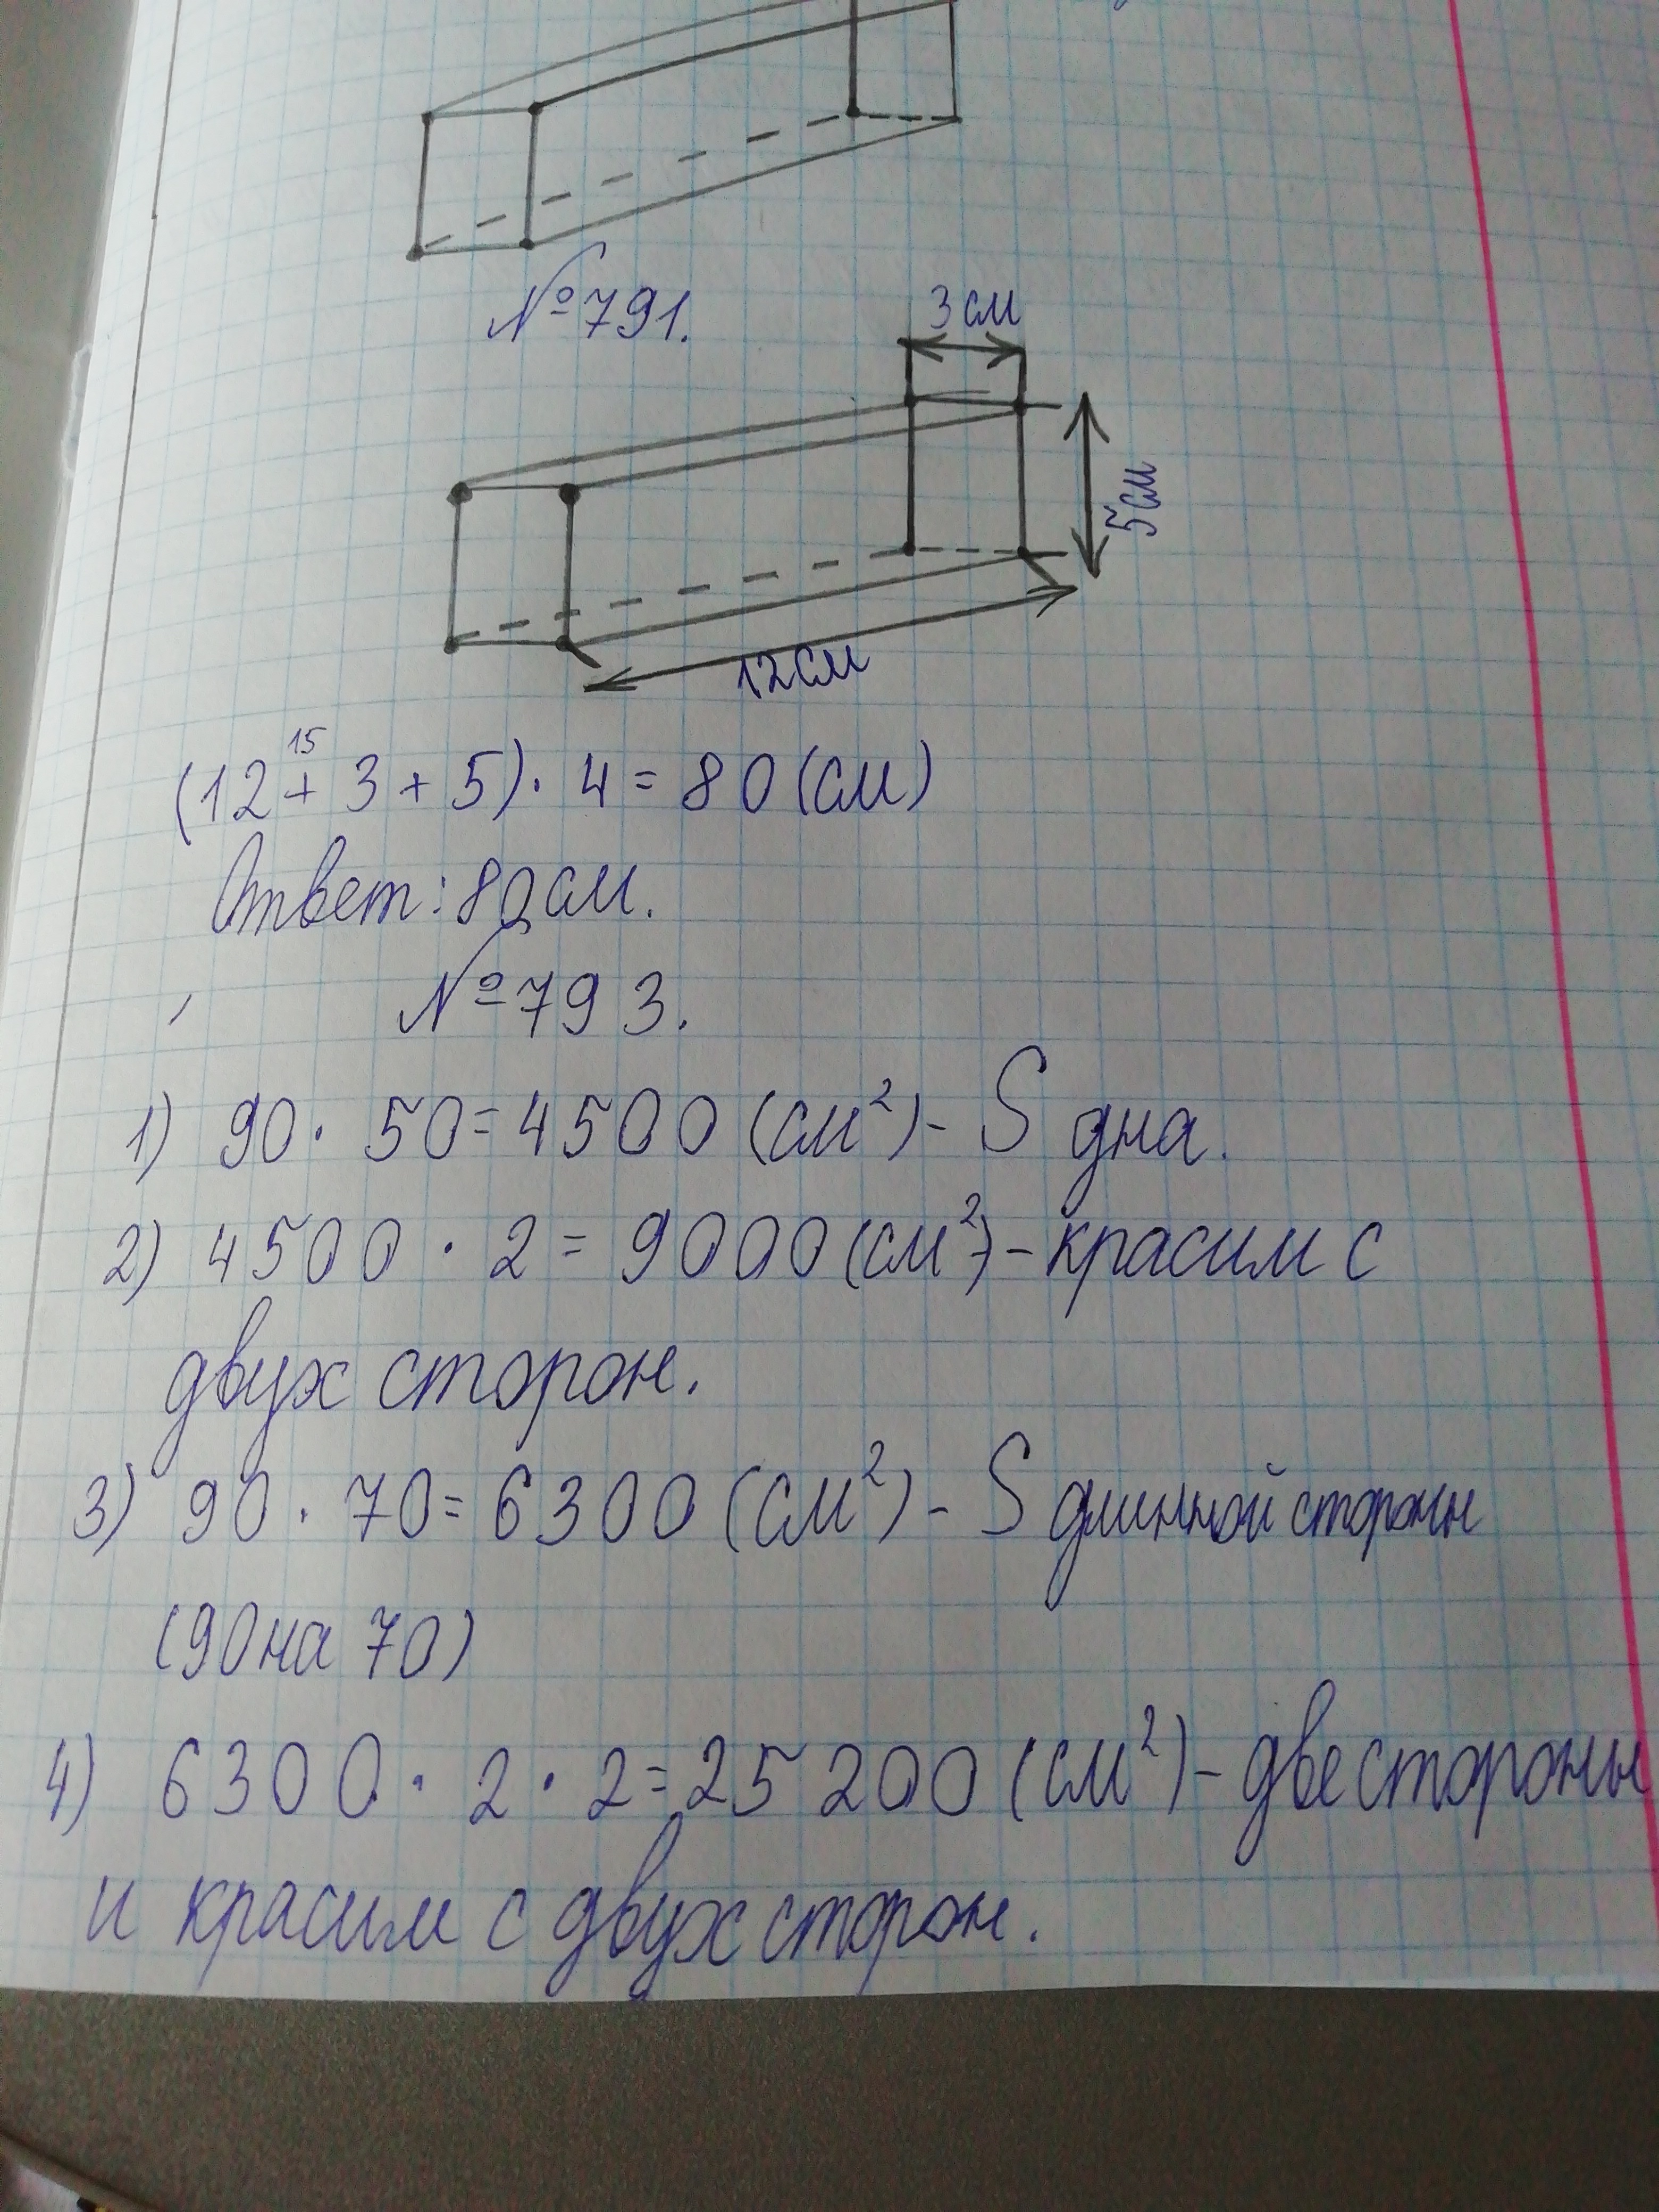 №791.
3 см
5см
12см
15
(12 + 3 + 5) · 4 = 80 (см)
Ответ: 80 см.
№793.
1) 90 · 50 = 4500 (см²) - S дна.
2) 4500 · 2 = 9000 (см²) - красим с
двух сторон.
3) 90 · 70 = 6300 (см²) - S длинной стороны
(90 на 70)
4) 6300 · 2 · 2 = 25 200 (см²) - две стороны
и красим с двух сторон.